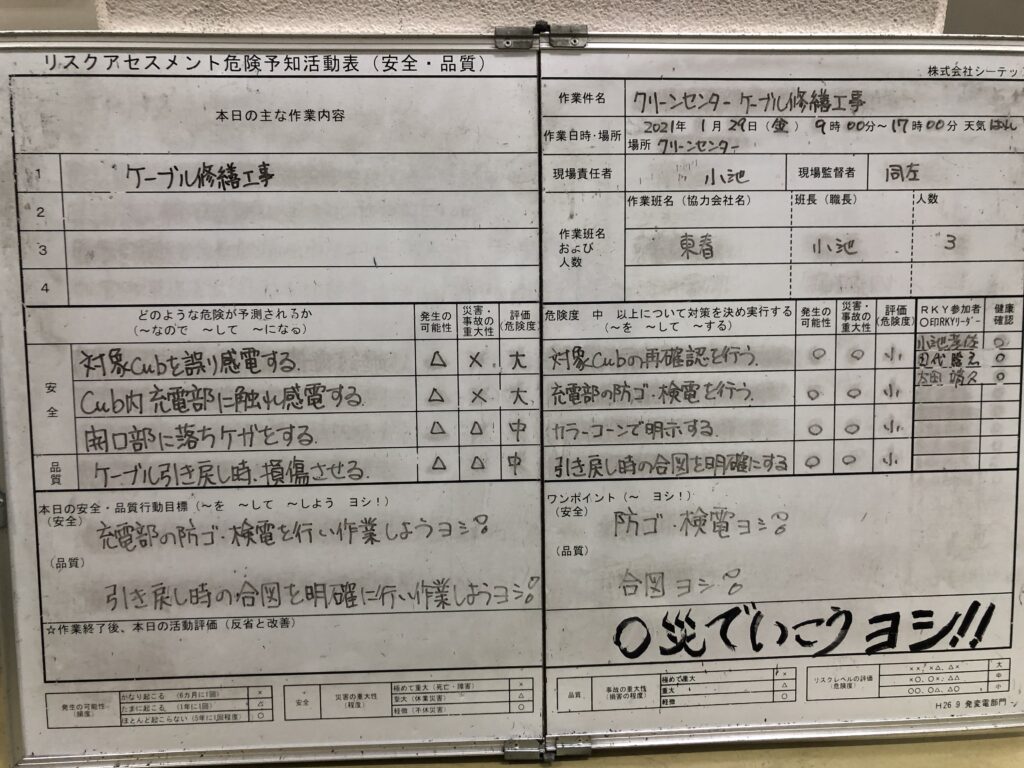 リスクアセスメント危険予知活動表（安全・品質）
本日の主な作業内容
1 ケーブル修繕工事
2
3
4
どのような危険が予測されるか
（～なので ～して ～になる）
発生の可能性
災害・事故の重大性
評価(危険度)
安全
対象Cubを誤り感電する. △ × 大
Cub内充電部に触れ感電する. △ × 大
開口部に落ちケガをする. △ △ 中
品質
ケーブル引き戻し時、損傷させる. △ △ 中
本日の安全・品質行動目標（～を ～して ～しよう ヨシ！）
（安全）
充電部の防ゴ・検電を行い作業しようヨシ!
（品質）
引き戻し時の合図を明確に行い作業しようヨシ!
☆作業終了後、本日の活動評価（反省と改善）
発生の可能性（頻度）
かなり起こる （6カ月に1回） ×
たまに起こる （1年に1回） △
ほとんど起こらない（5年に1回程度） ○
安全
災害の重大性（程度）
極めて重大（死亡・障害） ×
重大（休業災害） △
軽微（不休災害） ○
株式会社シーテッ
作業件名 クリーンセンター ケーブル修繕工事
作業日時・場所 2021年 1月 29日（金） 9時00分～17時00分 天気
場所 クリーンセンター
現場責任者 小池 現場監督者 同左
作業班名および人数
作業班名（協力会社名） 班長（職長） 人数
東春 小池 3
危険度 中 以上について対策を決め実行する
（～を ～して ～する）
発生の可能性
災害・事故の重大性
評価(危険度)
RKY参加者
○印RKYリーダー
健康確認
対象Cubの再確認を行う. ○ ○ 小
充電部の防ゴ・検電を行う. ○ ○ 小
カラーコーンで明示する. ○ ○ 小
引き戻し時の合図を明確にする ○ ○ 小
小池 ○
田代 ○
太田 ○
ワンポイント（～ ヨシ！）
（安全）
防ゴ・検電ヨシ!
（品質）
合図ヨシ!
〇災でいこうヨシ!!
品質
事故の重大性（損害の程度）
極めて重大 ×
重大 △
軽微 ○
リスクレベルの評価（危険度）
××, ×△, △× 大
×○, ○×, △△ 中
○○, ○△, △○
H26 9 発変電部門